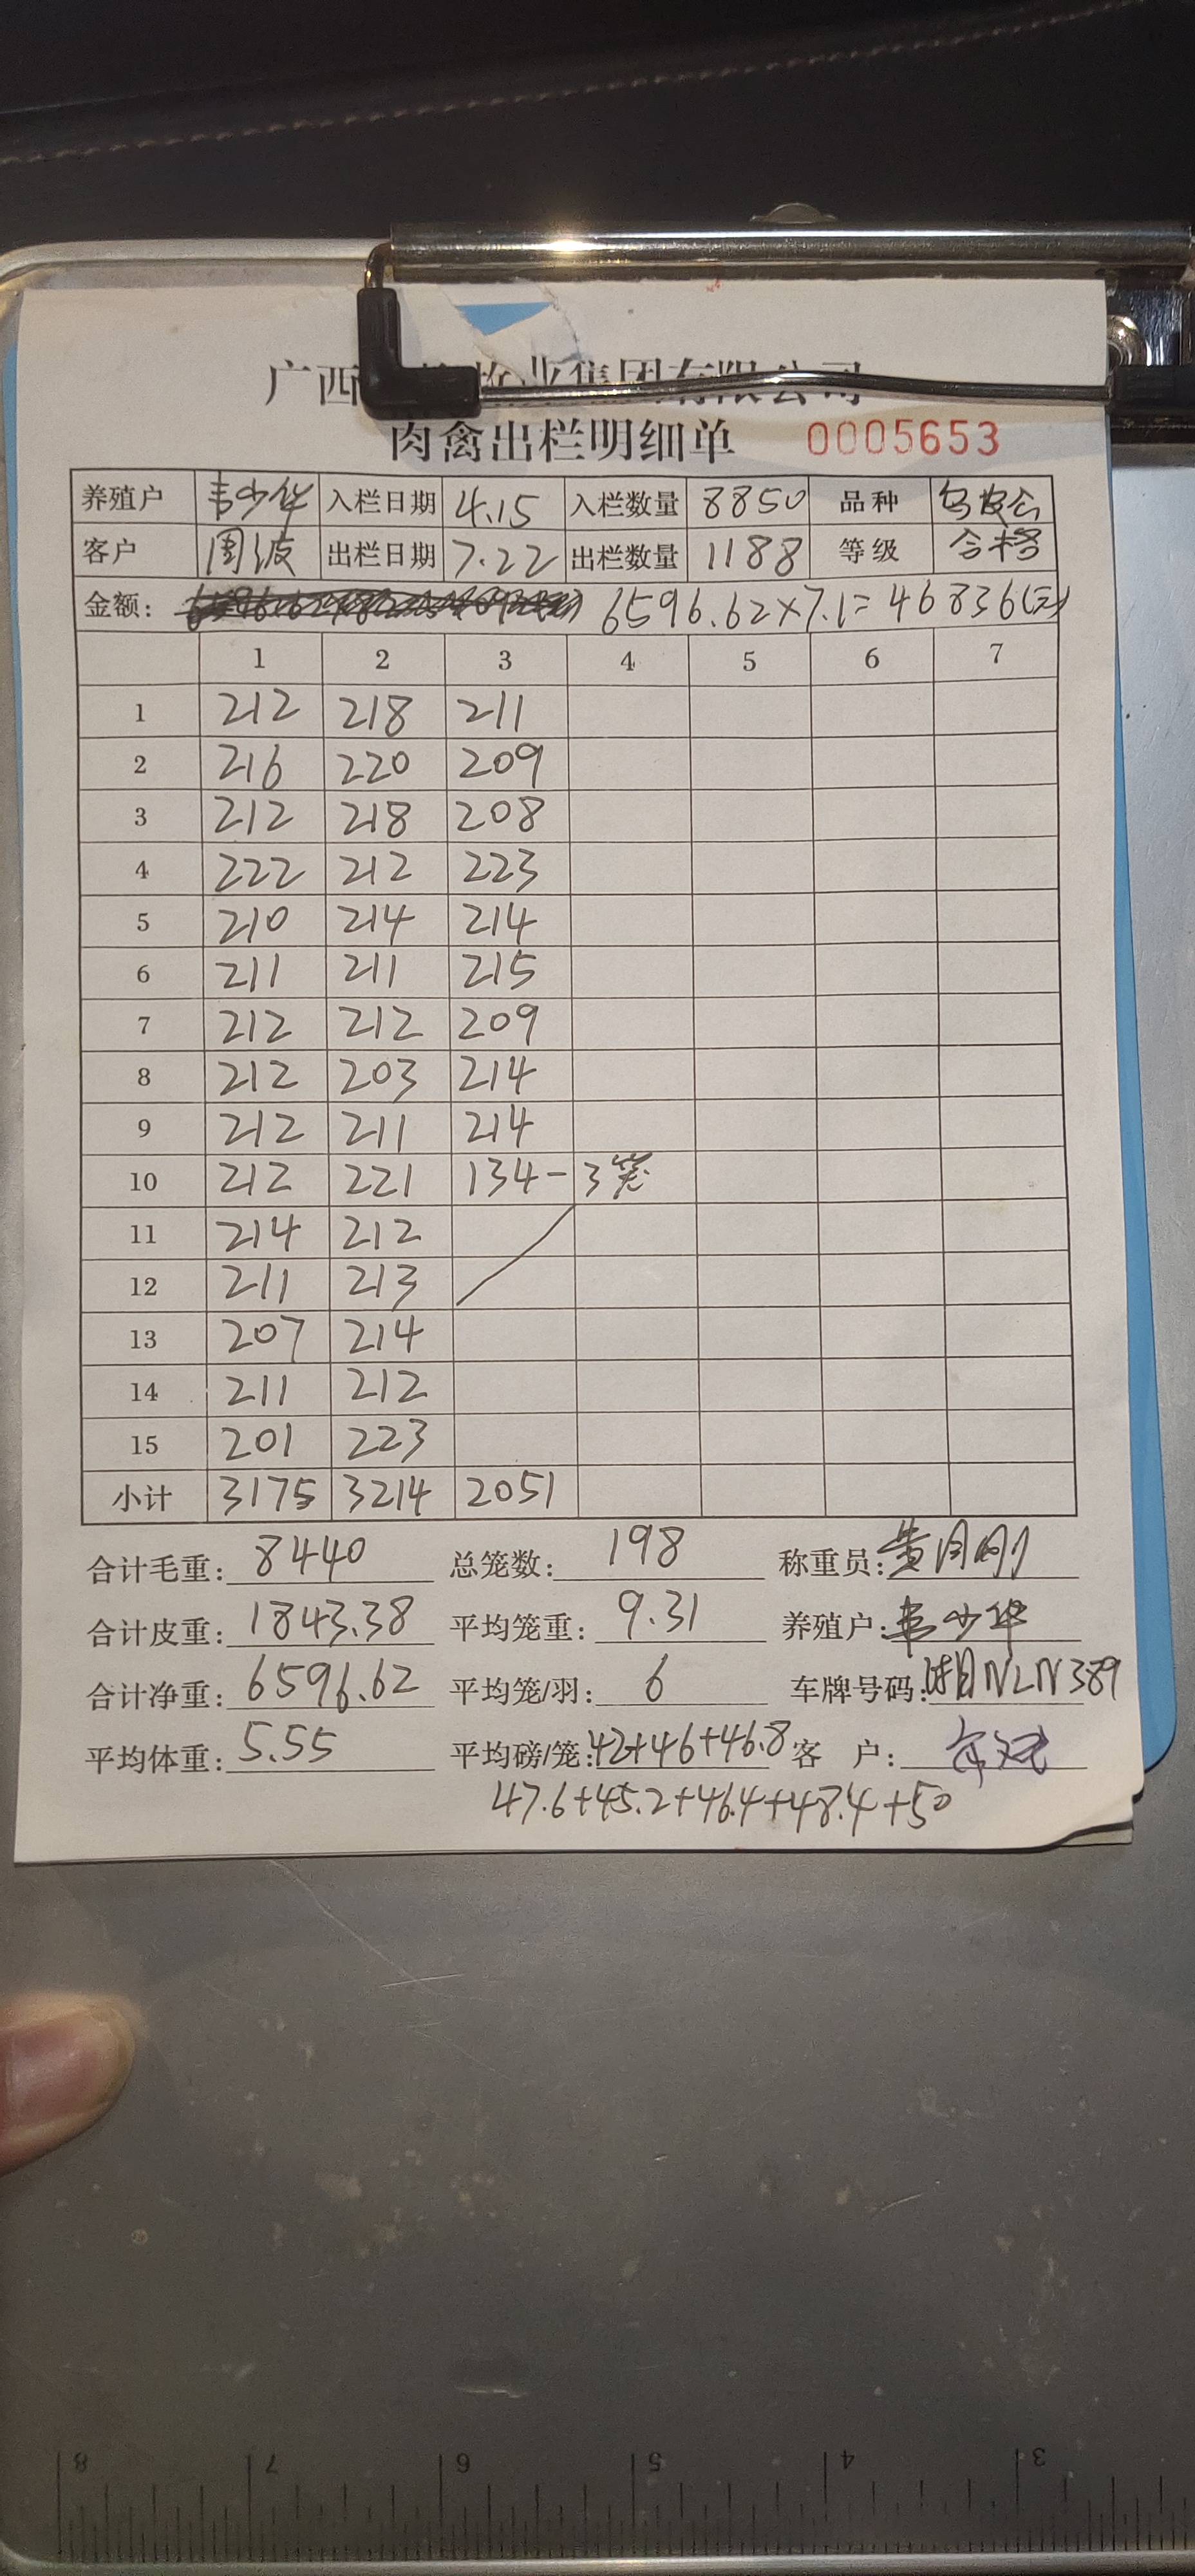 广西 牧业集团有限公司
肉禽出栏明细单 0005653
养殖户 韦少华 入栏日期 4.15 入栏数量 8850 品种
客户 周波 出栏日期 7.22 出栏数量 1188 等级 合格
金额: 6596.62×7.1=46836(元)
1 2 3 4 5 6 7
1 212 218 211
2 216 220 209
3 212 218 208
4 222 212 223
5 210 214 214
6 211 211 215
7 212 212 209
8 212 203 214
9 212 211 214
10 212 221 134-3笼
11 214 212
12 211 213
13 207 214
14 211 212
15 201 223
小计 3175 3214 2051
合计毛重: 8440 总笼数: 198 称重员:
合计皮重: 1843.38 平均笼重: 9.31 养殖户: 韦少华
合计净重: 6596.62 平均笼/羽: 6 车牌号码: 湘NLN389
平均体重: 5.55 平均磅/笼: 42+46+46.8 客 户:
47.6+45.2+46.4+48.4+50
8 7 6 5 4 3